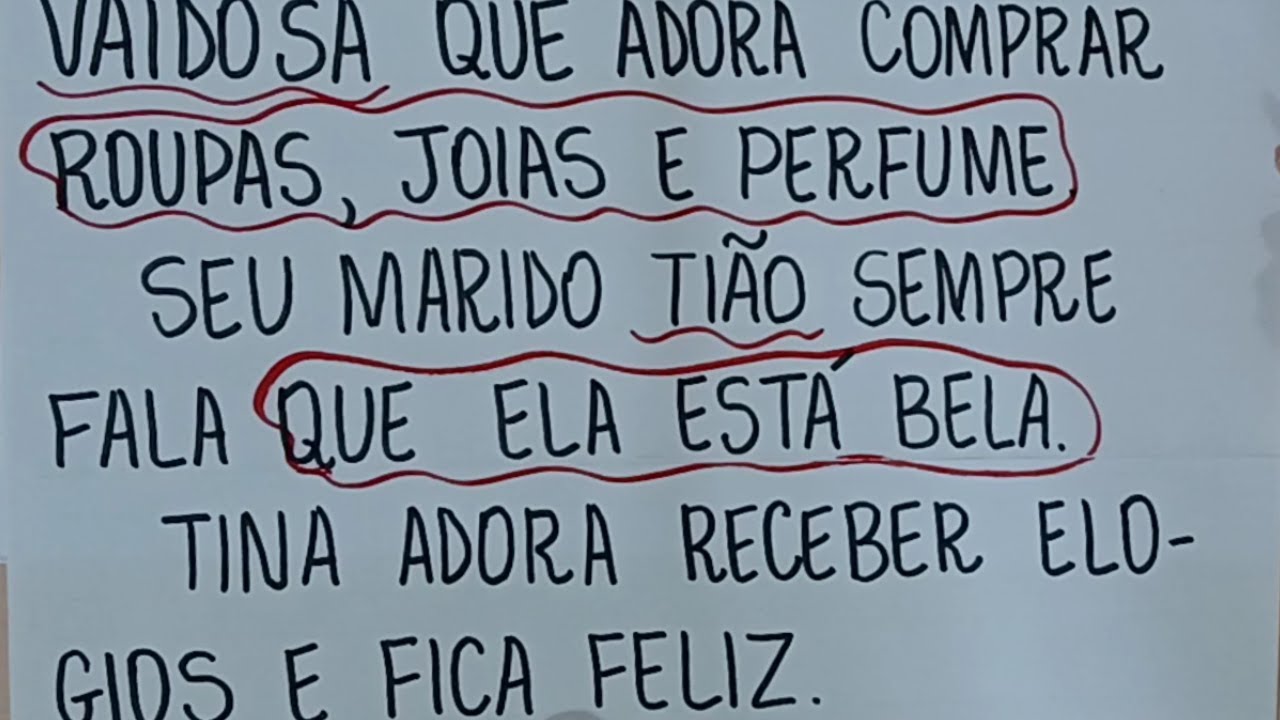 VAIDOSA QUE ADORA COMPRAR
ROUPAS, JOIAS E PERFUME.
SEU MARIDO TIÃO SEMPRE
FALA QUE ELA ESTÁ BELA.
TINA ADORA RECEBER ELO-
GIOS E FICA FELIZ.